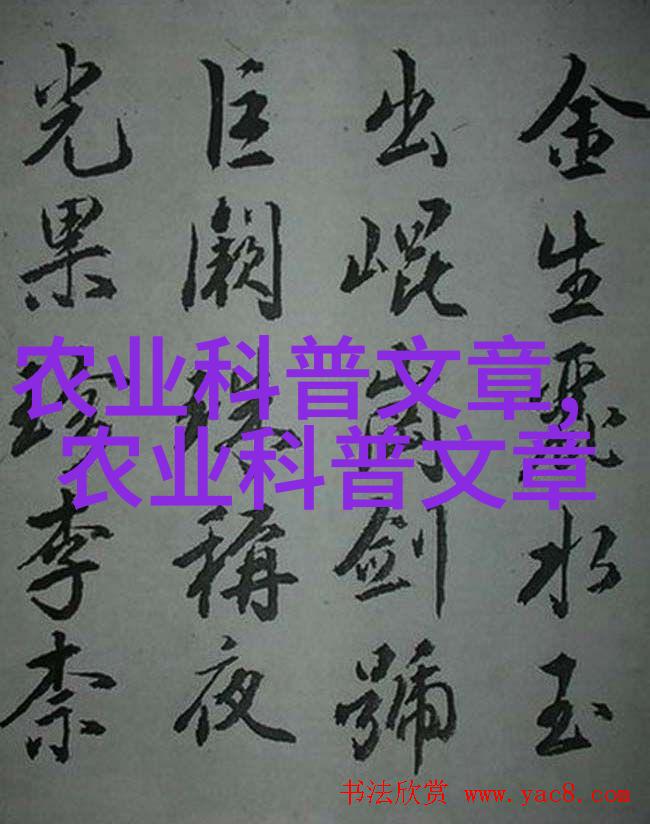 金生麗水玉
出崐岡劍號
巨闕珠稱夜
光果珍李柰
农业科普文章,
农业科普文章
书法欣赏 www.yac8.com